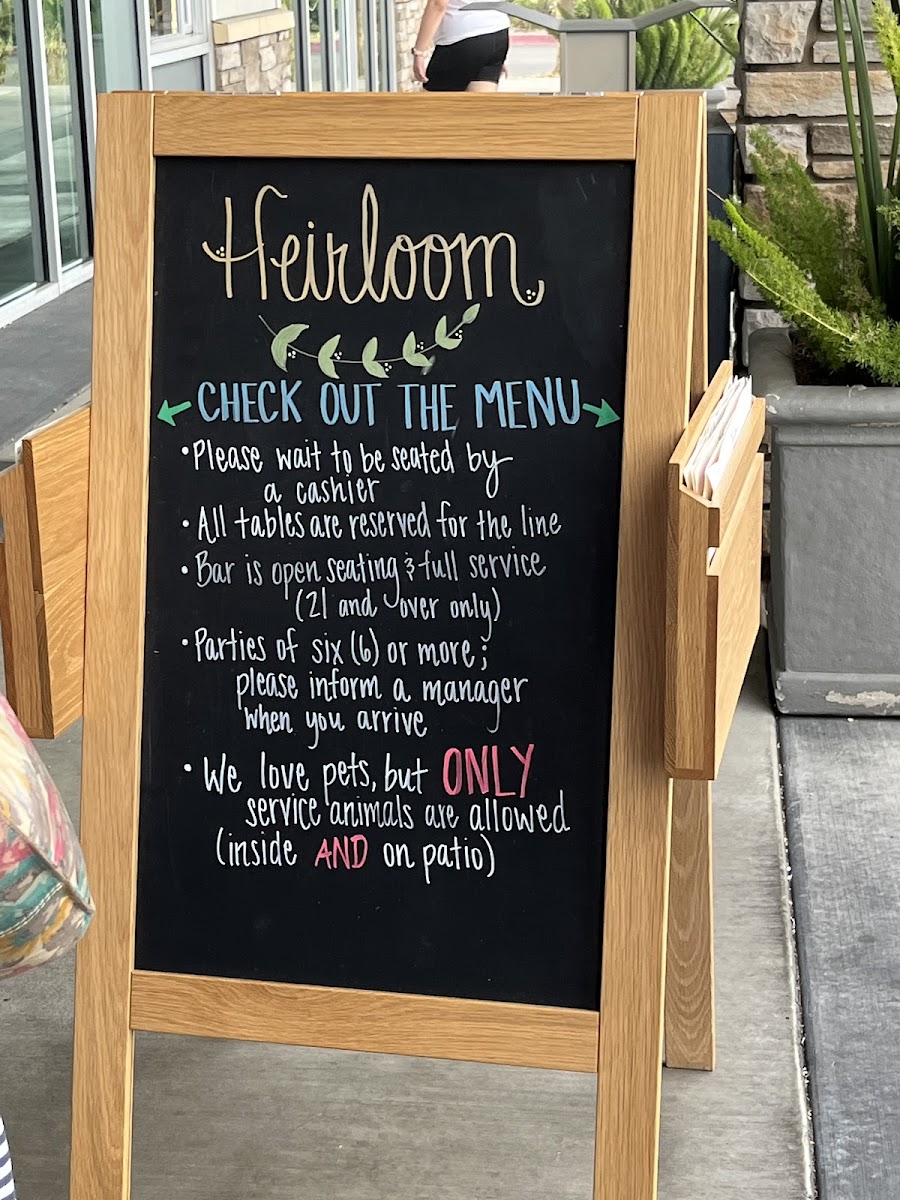 Heirloom
CHECK OUT THE MENU
• Please wait to be seated by
a cashier
• All tables are reserved for the line
• Bar is open seating & full service
(21 and over only)
• Parties of six (6) or more;
please inform a manager
when you arrive
• We love pets, but ONLY
service animals are allowed
(inside AND on patio)